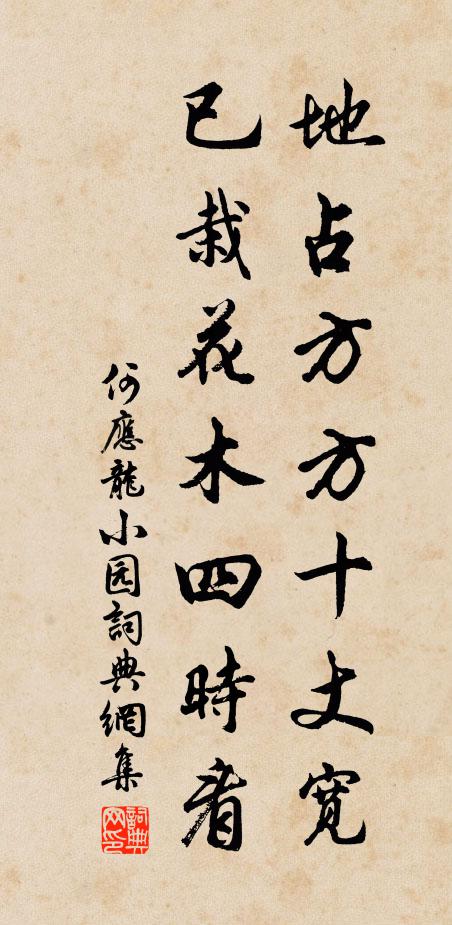 地占方方十丈寬
已栽花木四時看
何應龍小园詞典網集
詞典网印